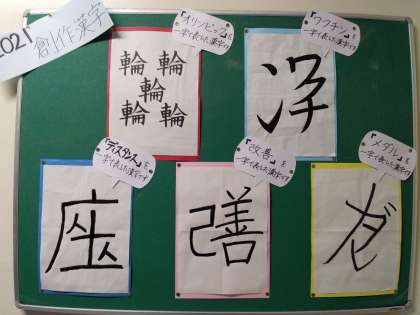 2021 創作漢字
『オリンピック』を
一字で表した漢字です
輪 輪
輪
輪 輪
『ワクチン』を
一字で表した漢字です
『ディスタンス』を
一字で表した漢字です
『改善』を
一字で表した漢字です
『メダル』を
一字で表した漢字です